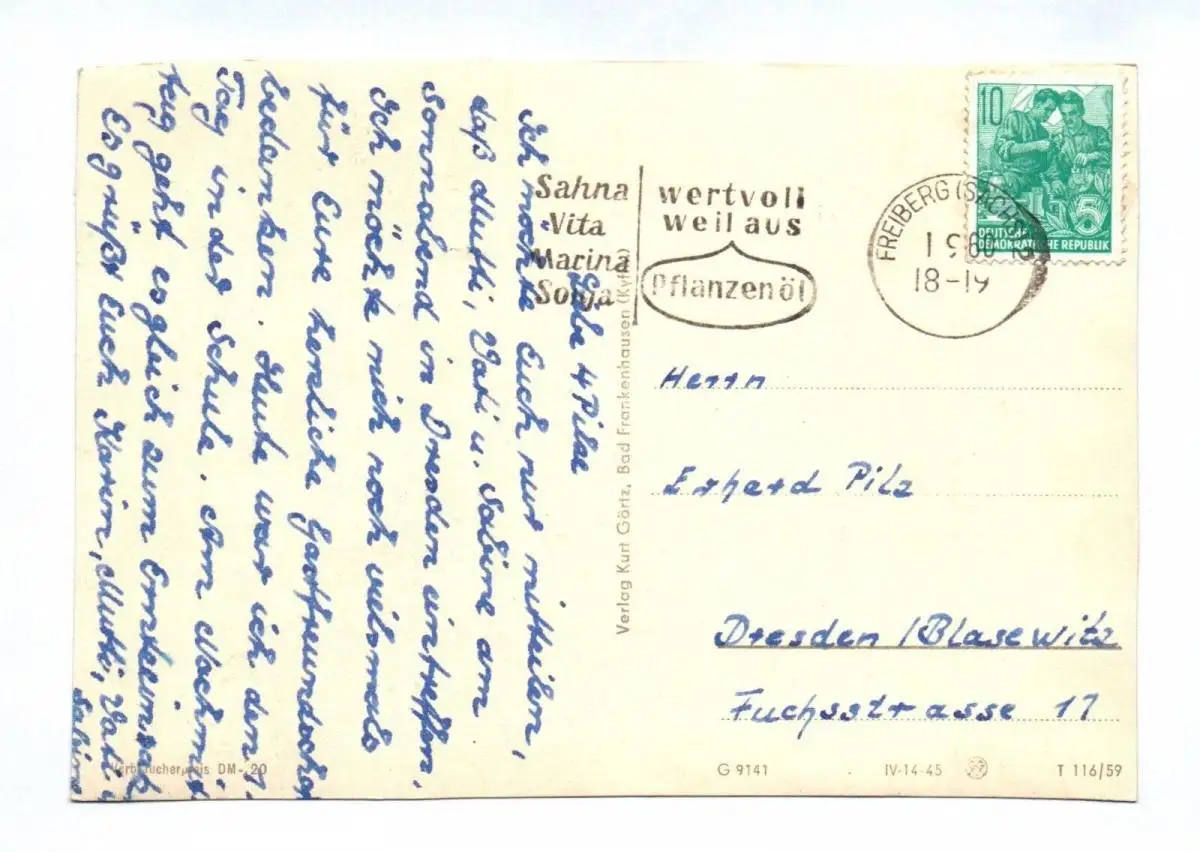 Liebe 4 Pilze
Ich möchte Euch nur mitteilen,
daß Mutti, Vati u. Sabine am
Sonnabend in Dresden eintreffen.
Ich möchte mich noch vielmals
für Eure herzliche Gastfreundschaft
bedanken. Heute war ich den 1.
Tag in der Schule. Am Nachmit-
tag geht es gleich zum Ernteeinsatz
Es grüßt Euch Karin, Mutti, Vati
Sabine
Sahna
Vita
Marina
Sonja
wertvoll
weil aus
Pflanzenöl
FREIBERG (SACHS)
18-19
10
5
DEUTSCHE
DEMOKRATISCHE REPUBLIK
Verlag Kurt Görtz, Bad Frankenhausen (Kyffh)
Herrn
Erhard Pilz
Dresden /Blasewitz
Fuchsstrasse 17
Verbraucherpreis DM -,20
G 9141
IV-14-45
T 116/59